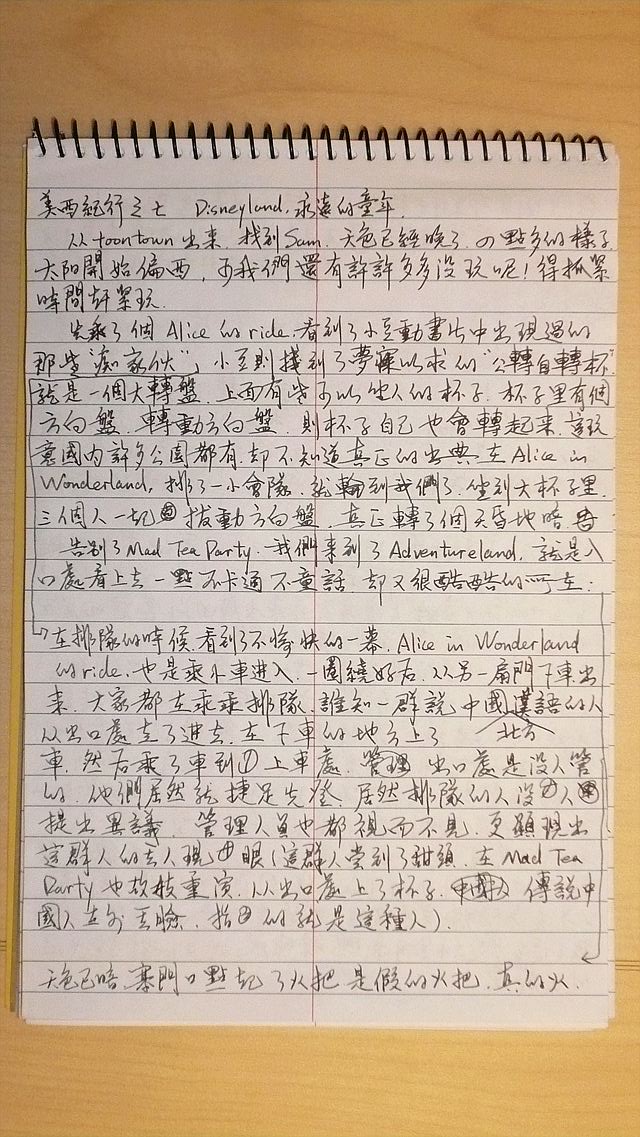 美西紀行之七 Disneyland,永遠的童年.
从toontown出来.找到Sam.天色已經晚了.の點多的樣子.
太阳開始偏西,可我們還有許許多多没玩呢!得抓緊
時間赶緊玩.
先乘了個Alice的ride.看到了小豆動畫片中出現過的
那些"痴家伙",小豆則找到了夢寐以求的"公轉自轉杯"
就是一個大轉盤.上面有些可以坐人的杯子.杯子里有個
方向盤.轉動方向盤.則杯子自己也會轉起來.這玩
意國内許多公園都有.却不知道真正的出典在Alice in
Wonderland,排了一小會隊.就輪到我們了.坐到大杯子里.
三個人一起拔動方向盤.真正轉了個天昏地暗
告别了Mad Tea Party.我們来到了Adventureland,就是入
口處看上去一點不卡通不童話.却又很酷酷的所在.
在排隊的時候.看到了不愉快的一幕.Alice in Wonderland
的ride.也是乘小車進入.一圈繞好后.从另一扇門下車出
来.大家都在乖乖排隊.誰知一群說中國漢語的人
北京
从出口處走了進去.在下車的地方上了
車.然后乘了車到上車處.管理出口處是没人管
的.他們居然就捷足先登.居然排隊的人没人
提出異議.管理人員也都視而不見.更顯現出
這群人的丢人現眼(這群人尝到了甜頭.在Mad Tea
Party也故技重演.从出口處上了杯子.傳說中
國人在外丢臉.指的就是這種人).
天色已暗.寨門口點起了火把.是假的火把.真的火.